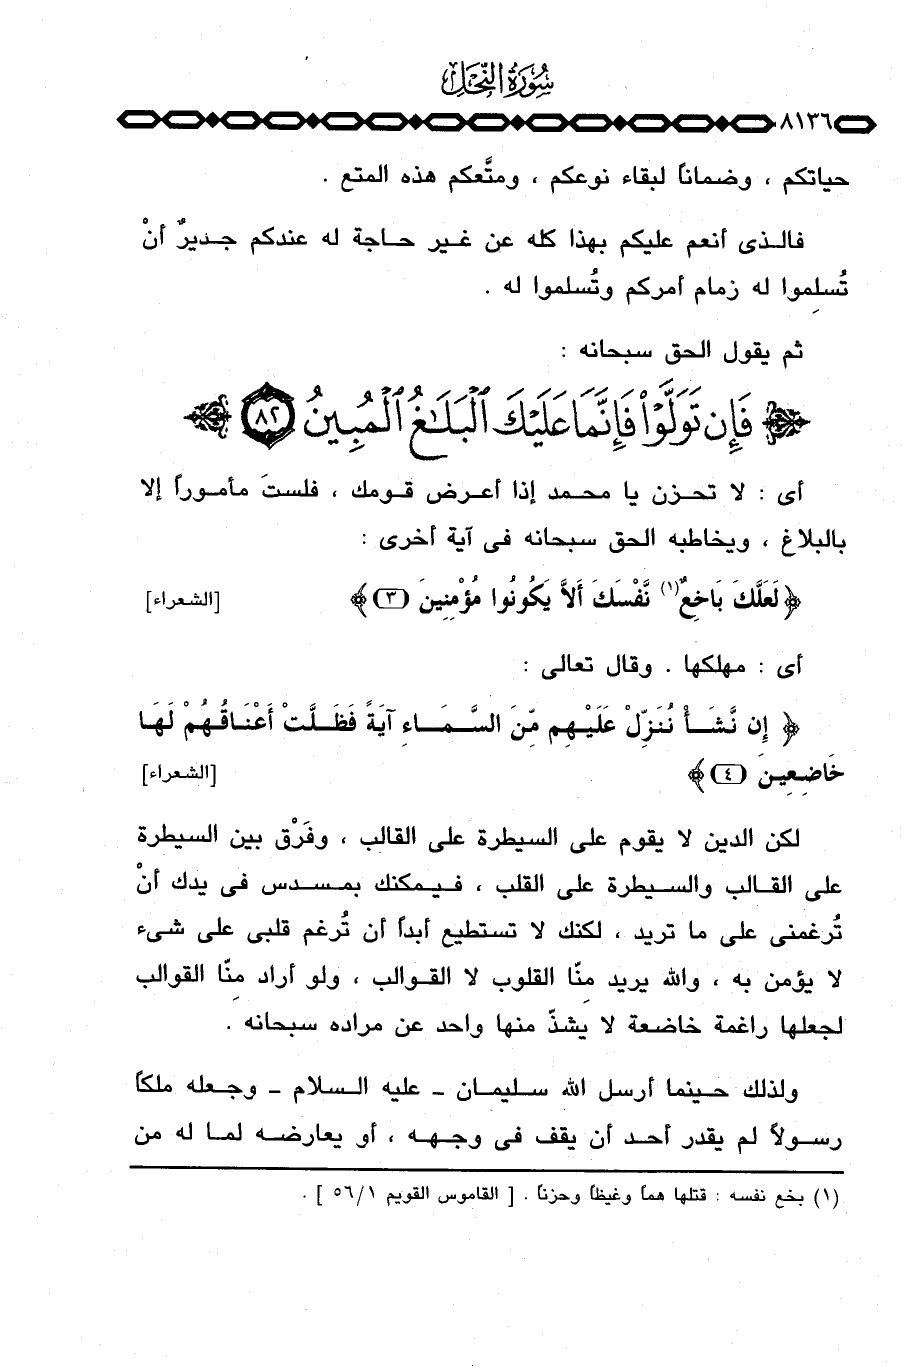 سُورَةُ النَّحْلِ
٨١٣٦
حياتكم ، وضماناً لبقاء نوعكم ، ومتَّعكم هذه المتع .
فالـذى أنعم عليكم بهذا كله عن غـير حـاجة له عندكم جـديرٌ أنْ
تُسلِموا له زمام أمركم وتُسلموا له .
ثم يقول الحق سبحانه :
﴿ فَإِن تَوَلَّوْا۟ فَإِنَّمَا عَلَيْكَ ٱلْبَلَـٰغُ ٱلْمُبِينُ ٨٢ ﴾
أى : لا تحـزن يا محـمد إذا أعـرض قـومك ، فلستَ مأمـوراً إلا
بالبلاغ ، ويخاطبه الحق سبحانه فى آية أخرى :
﴿ لَعَلَّكَ بَاخِعٌ (١) نَّفْسَكَ أَلاَّ يَكُونُوا مُؤْمِنِينَ (٣) ﴾ [الشعراء]
أى : مهلكها . وقال تعالى :
﴿ إِن نَّشَـأْ نُنَزِّلْ عَلَيْـهِم مِّنَ السَّـمَـاءِ آيَةً فَظَـلَّتْ أَعْنَاقُـهُمْ لَهَا
خَاضِعِينَ (٤) ﴾ [الشعراء]
لكن الدين لا يقوم على السيطرة على القالب ، وفَرْق بين السيطرة
على القـالب والسـيطرة على القلب ، فـيـمكنك بمـسـدس فى يدك أنْ
تُرغمنى على ما تريد ، لكنك لا تستطيع أبداً أن تُرغم قلبى على شىء
لا يؤمن به ، والله يريد مِنّا القلوب لا القـوالب ، ولو أراد مِنّا القوالب
لجعلها راغمة خاضعة لا يشذّ منها واحد عن مراده سبحانه .
ولذلك حـينما أرسل الله سـليمـان ـ عليه السـلام ـ وجـعله ملكاً
رسـولاً لم يقدر أحـد أن يقف فى وجـهـه ، أو يعارضـه لمـا له من
(١) بخع نفسه : قتلها هماً وغيظاً وحزناً . [ القاموس القويم ٥٦/١ ] .